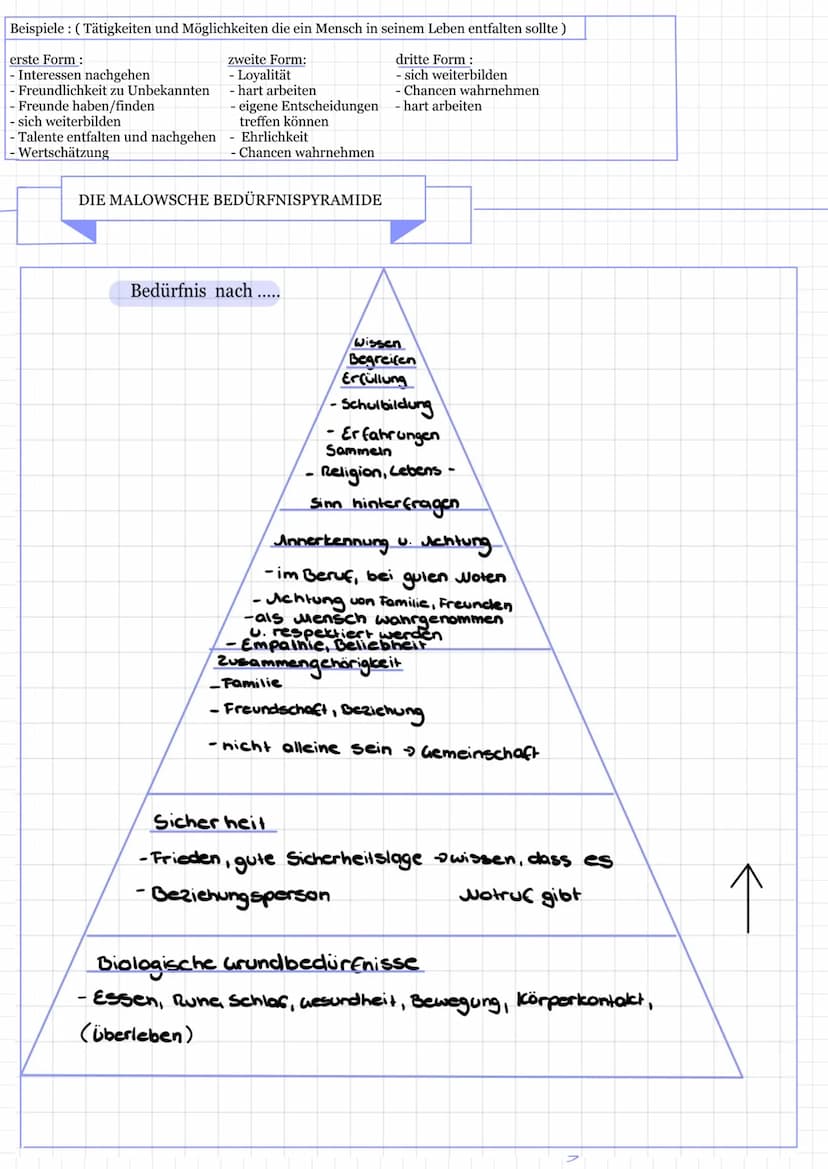 Beispiele : ( Tätigkeiten und Möglichkeiten die ein Mensch in seinem Leben entfalten sollte )
erste Form :
- Interessen nachgehen
- Freundlichkeit zu Unbekannten
- Freunde haben/finden
- sich weiterbilden
- Talente entfalten und nachgehen
- Wertschätzung
zweite Form:
- Loyalität
- hart arbeiten
- eigene Entscheidungen
treffen können
- Ehrlichkeit
- Chancen wahrnehmen
dritte Form :
- sich weiterbilden
- Chancen wahrnehmen
- hart arbeiten
DIE MALOWSCHE BEDÜRFNISPYRAMIDE
Bedürfnis nach .....
Wissen
Begreifen
Erfüllung
- Schulbildung
- Erfahrungen
Sammeln
- Religion, Lebens -
Sinn hinterfragen
Annerkennung u. Achtung
- im Beruf, bei guten Noten
- Achtung von Familie, Freunden
- als Mensch wahrgenommen
u. respektiert werden
- Empathie, Beliebheit
Zusammengehörigkeit
- Familie
- Freundschaft, Beziehung
- nicht alleine sein → Gemeinschaft
Sicherheit
- Frieden, gute Sicherheitslage → wissen, dass es
- Beziehungsperson Notruf gibt
Biologische Grundbedürfnisse
- Essen, Ruhe, Schlaf, Gesundheit, Bewegung, Körperkontakt,
(überleben)